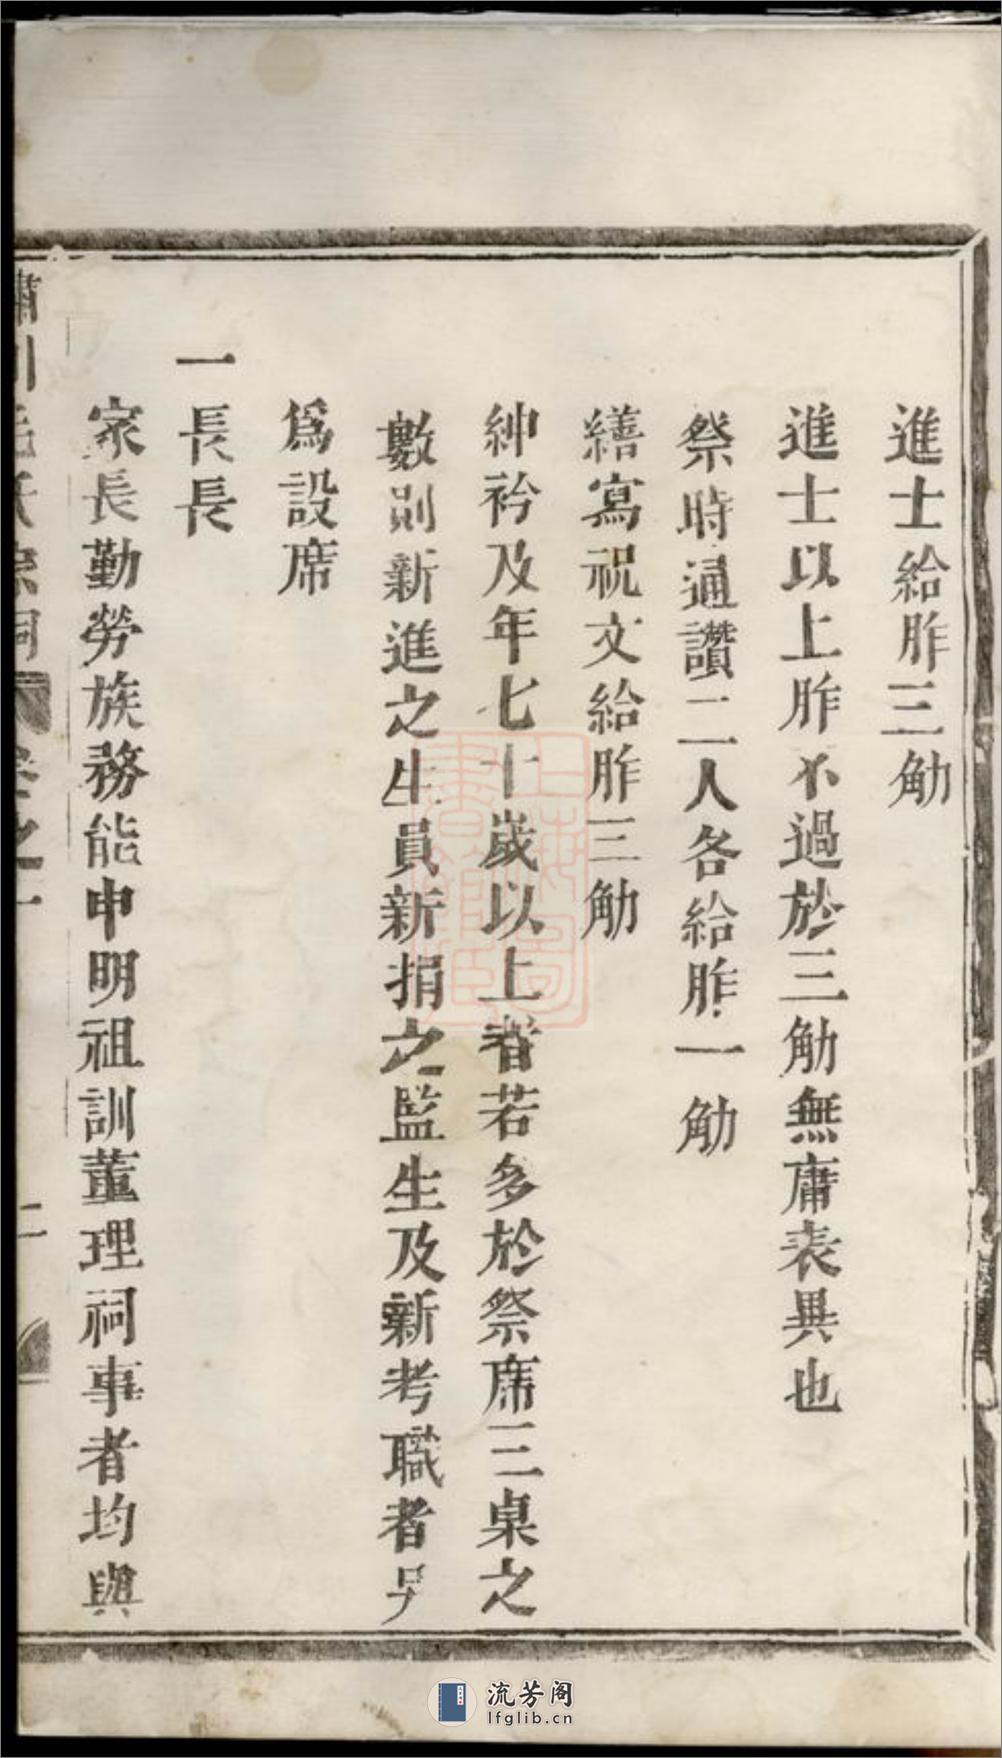 進士給胙三觔
進士以上胙不過於三觔無庸表異也
祭時通讚二人各給胙一觔
繕寫祝文給胙三觔
紳衿及年七十歲以上者若多於祭席三桌之
數則新進之生員新捐之監生及新考職者另
爲設席
一長長
家長勤勞族務能申明祖訓董理祠事者均與
毛氏宗祠 卷之一 二
上海圖書館藏
流芳阁
lfglib.cn